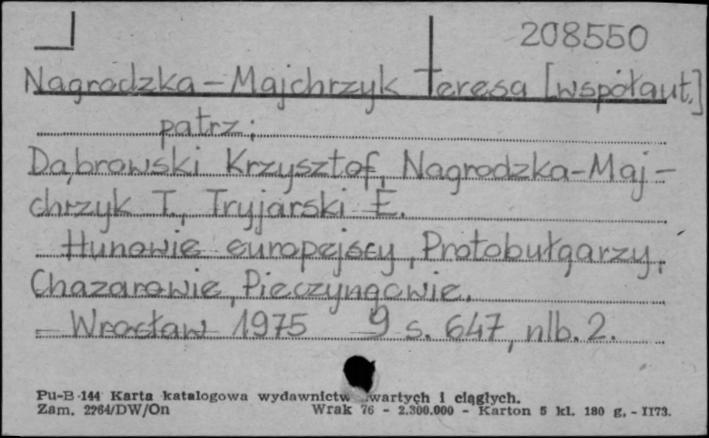 208550
Nagrodzka-Majchrzyk Teresa [współaut.]
patrz:
Dąbrowski Krzysztof, Nagrodzka-Maj-
chrzyk T., Tryjarski E.
Hunowie europejscy, Protobułgarzy,
Chazarowie, Pieczyngowie.
Wrocław 1975 s. 647, nlb. 2.
Pu-B-144 Karta katalogowa wydawnictw wartych i ciągłych.
Zam. 2264/DW/On Wrak 76 - 2.300.000 - Karton 5 kl. 180 g. - 1173.